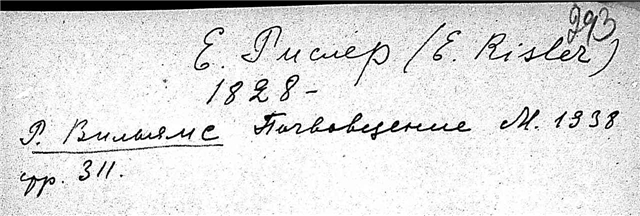 293
Е. Рислер (E. Risler)
1828-
Р. Вильямс Почвоведение М. 1938
стр. 311.